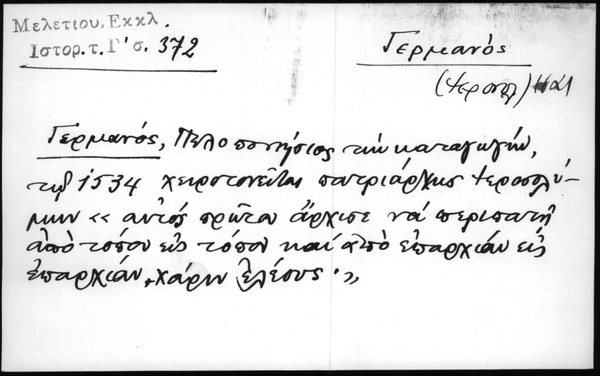 Μελετίου, Εκκλ.
Ιστορ. τ. Γ' σ. 372
Γερμανός
Γερμανός, Πελοποννήσιος τὴν καταγωγήν,
τῷ 1534 χειροτονεῖται πατριάρχης Ἱεροσολύ-
μων « αὐτός πρῶτον ἄρχισε νά περιπατῇ
ἀπό τόπον εἰς τόπον καί ἀπό ἐπαρχίαν εἰς
ἐπαρχίαν, χάριν ἐλέους. »